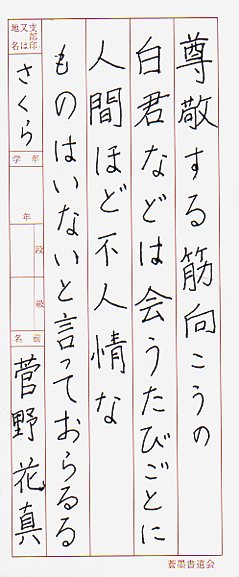 尊敬する筋向こうの
白君などは会うたびごとに
人間ほど不人情な
ものはいないと言っておらるる
支部印
又は
地名
さくら
学年
年
段
級
名前
菅野花真
蒼墨書道会